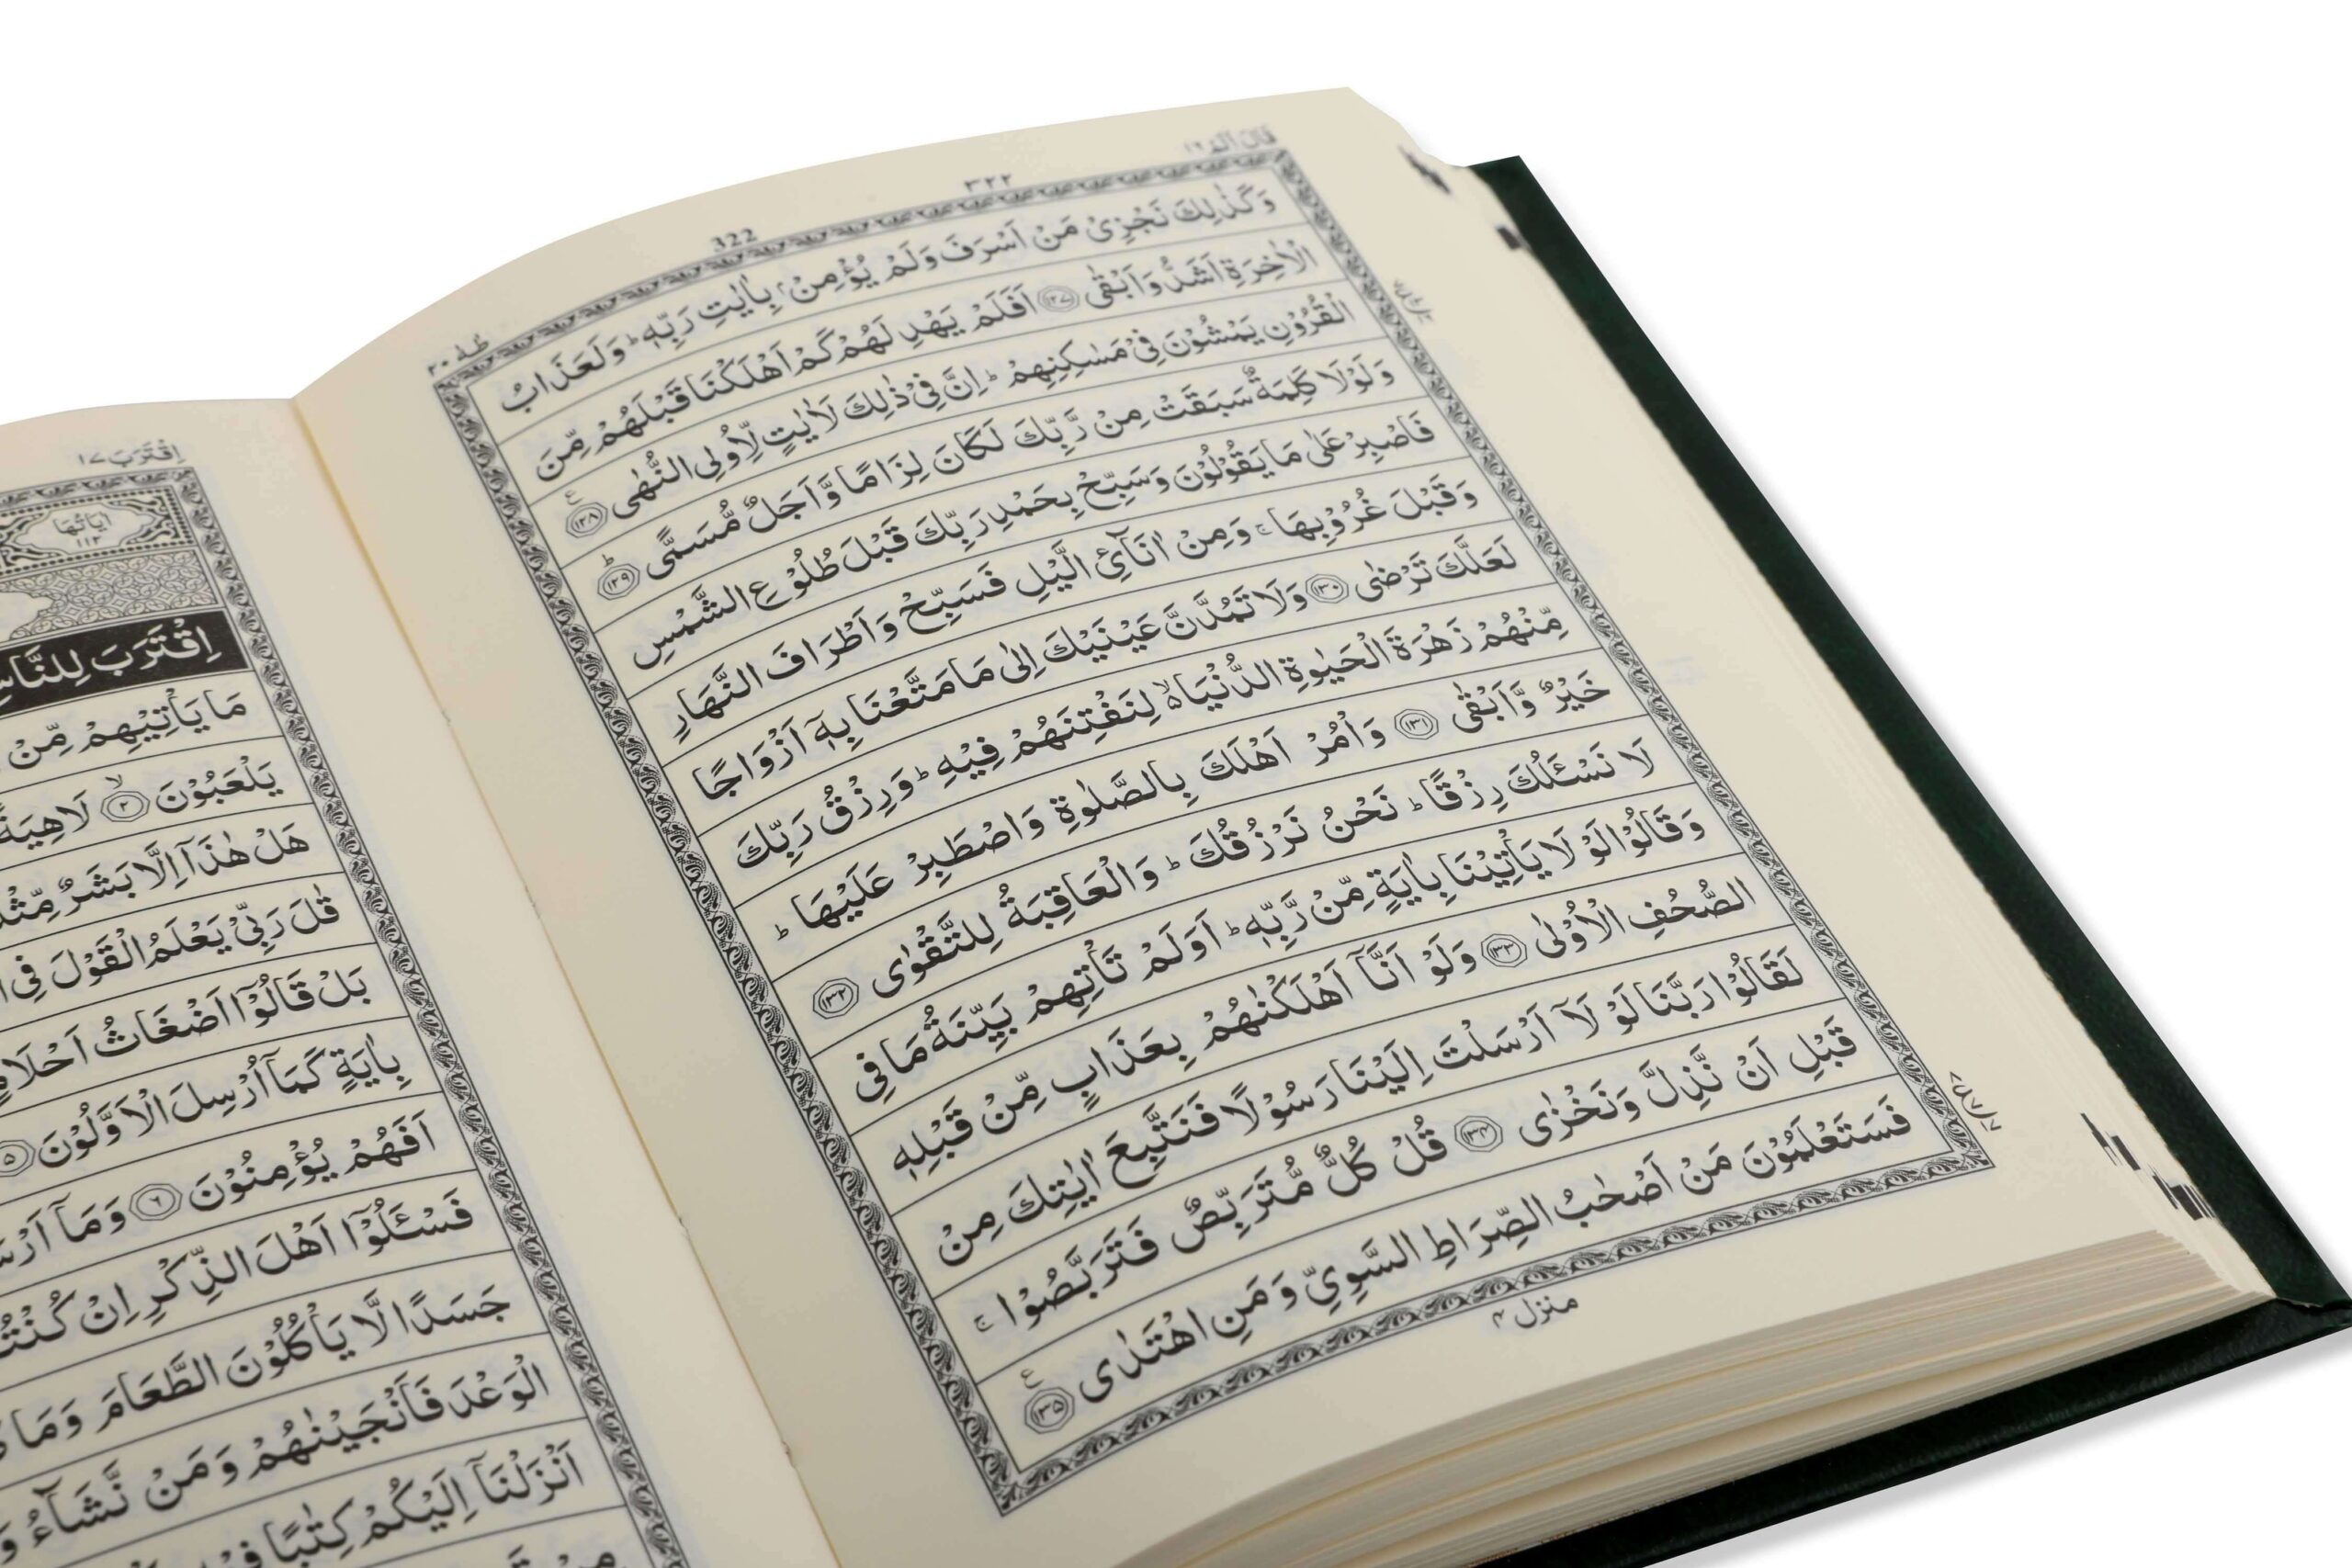 قَالَ اَلَمْ ١٦
٣٢٢
322
طٰهٰ ٢٠
وَكَذٰلِكَ نَجْزِیْ مَنْ اَسْرَفَ وَلَمْ یُؤْمِنْۢ بِاٰیٰتِ رَبِّهٖ ؕ وَلَعَذَابُ
الْاٰخِرَةِ اَشَدُّ وَاَبْقٰی ﴿١٢٧﴾ اَفَلَمْ یَهْدِ لَهُمْ كَمْ اَهْلَكْنَا قَبْلَهُمْ مِّنَ
الْقُرُوْنِ یَمْشُوْنَ فِیْ مَسٰكِنِهِمْ ؕ اِنَّ فِیْ ذٰلِكَ لَاٰیٰتٍ لِّاُولِی النُّهٰی ﴿١٢٨﴾ ع
وَلَوْلَا كَلِمَةٌ سَبَقَتْ مِنْ رَّبِّكَ لَكَانَ لِزَامًا وَّاَجَلٌ مُّسَمًّی ﴿١٢٩﴾ ؕ
فَاصْبِرْ عَلٰی مَا یَقُوْلُوْنَ وَسَبِّحْ بِحَمْدِ رَبِّكَ قَبْلَ طُلُوْعِ الشَّمْسِ
وَقَبْلَ غُرُوْبِهَا ۚ وَمِنْ اٰنَآئِ الَّیْلِ فَسَبِّحْ وَاَطْرَافَ النَّهَارِ
لَعَلَّكَ تَرْضٰی ﴿١٣٠﴾ وَلَا تَمُدَّنَّ عَیْنَیْكَ اِلٰی مَا مَتَّعْنَا بِهٖۤ اَزْوَاجًا
مِّنْهُمْ زَهْرَةَ الْحَیٰوةِ الدُّنْیَا ۙ۬ لِنَفْتِنَهُمْ فِیْهِ ؕ وَرِزْقُ رَبِّكَ
خَیْرٌ وَّاَبْقٰی ﴿١٣١﴾ وَاْمُرْ اَهْلَكَ بِالصَّلٰوةِ وَاصْطَبِرْ عَلَیْهَا ؕ
لَا نَسْـَٔلُكَ رِزْقًا ؕ نَحْنُ نَرْزُقُكَ ؕ وَالْعَاقِبَةُ لِلتَّقْوٰی ﴿١٣٢﴾
وَقَالُوْا لَوْ لَا یَاْتِیْنَا بِاٰیَةٍ مِّنْ رَّبِّهٖ ؕ اَوَلَمْ تَاْتِهِمْ بَیِّنَةُ مَا فِی
الصُّحُفِ الْاُوْلٰی ﴿١٣٣﴾ وَلَوْ اَنَّاۤ اَهْلَكْنٰهُمْ بِعَذَابٍ مِّنْ قَبْلِهٖ
لَقَالُوْا رَبَّنَا لَوْ لَاۤ اَرْسَلْتَ اِلَیْنَا رَسُوْلًا فَنَتَّبِعَ اٰیٰتِكَ مِنْ
قَبْلِ اَنْ نَّذِلَّ وَنَخْزٰی ﴿١٣٤﴾ قُلْ كُلٌّ مُّتَرَبِّصٌ فَتَرَبَّصُوْا ۚ
فَسَتَعْلَمُوْنَ مَنْ اَصْحٰبُ الصِّرَاطِ السَّوِیِّ وَمَنِ اهْتَدٰی ﴿١٣٥﴾ ع
منزل ٤
اِقْتَرَبَ ١٧
اٰیَاتُهَا ١١٢
اِقْتَرَبَ لِلنَّاسِ
مَا یَاْتِیْهِمْ مِّنْ
یَلْعَبُوْنَ ﴿٢﴾ ۙ لَاهِیَةً
هَلْ هٰذَاۤ اِلَّا بَشَرٌ مِّثْلُ
قٰلَ رَبِّیْ یَعْلَمُ الْقَوْلَ فِی
بَلْ قَالُوْۤا اَضْغَاثُ اَحْلَامٍ
بِاٰیَةٍ كَمَاۤ اُرْسِلَ الْاَوَّلُوْنَ ﴿٥﴾
اَفَهُمْ یُؤْمِنُوْنَ ﴿٦﴾ وَمَاۤ
فَسْـَٔلُوْۤا اَهْلَ الذِّكْرِ اِنْ
جَسَدًا لَّا یَاْكُلُوْنَ الطَّعَامَ وَمَا
الْوَعْدَ فَاَنْجَیْنٰهُمْ وَمَنْ نَّشَآءُ
اَنْزَلْنَاۤ اِلَیْكُمْ كِتٰبًا